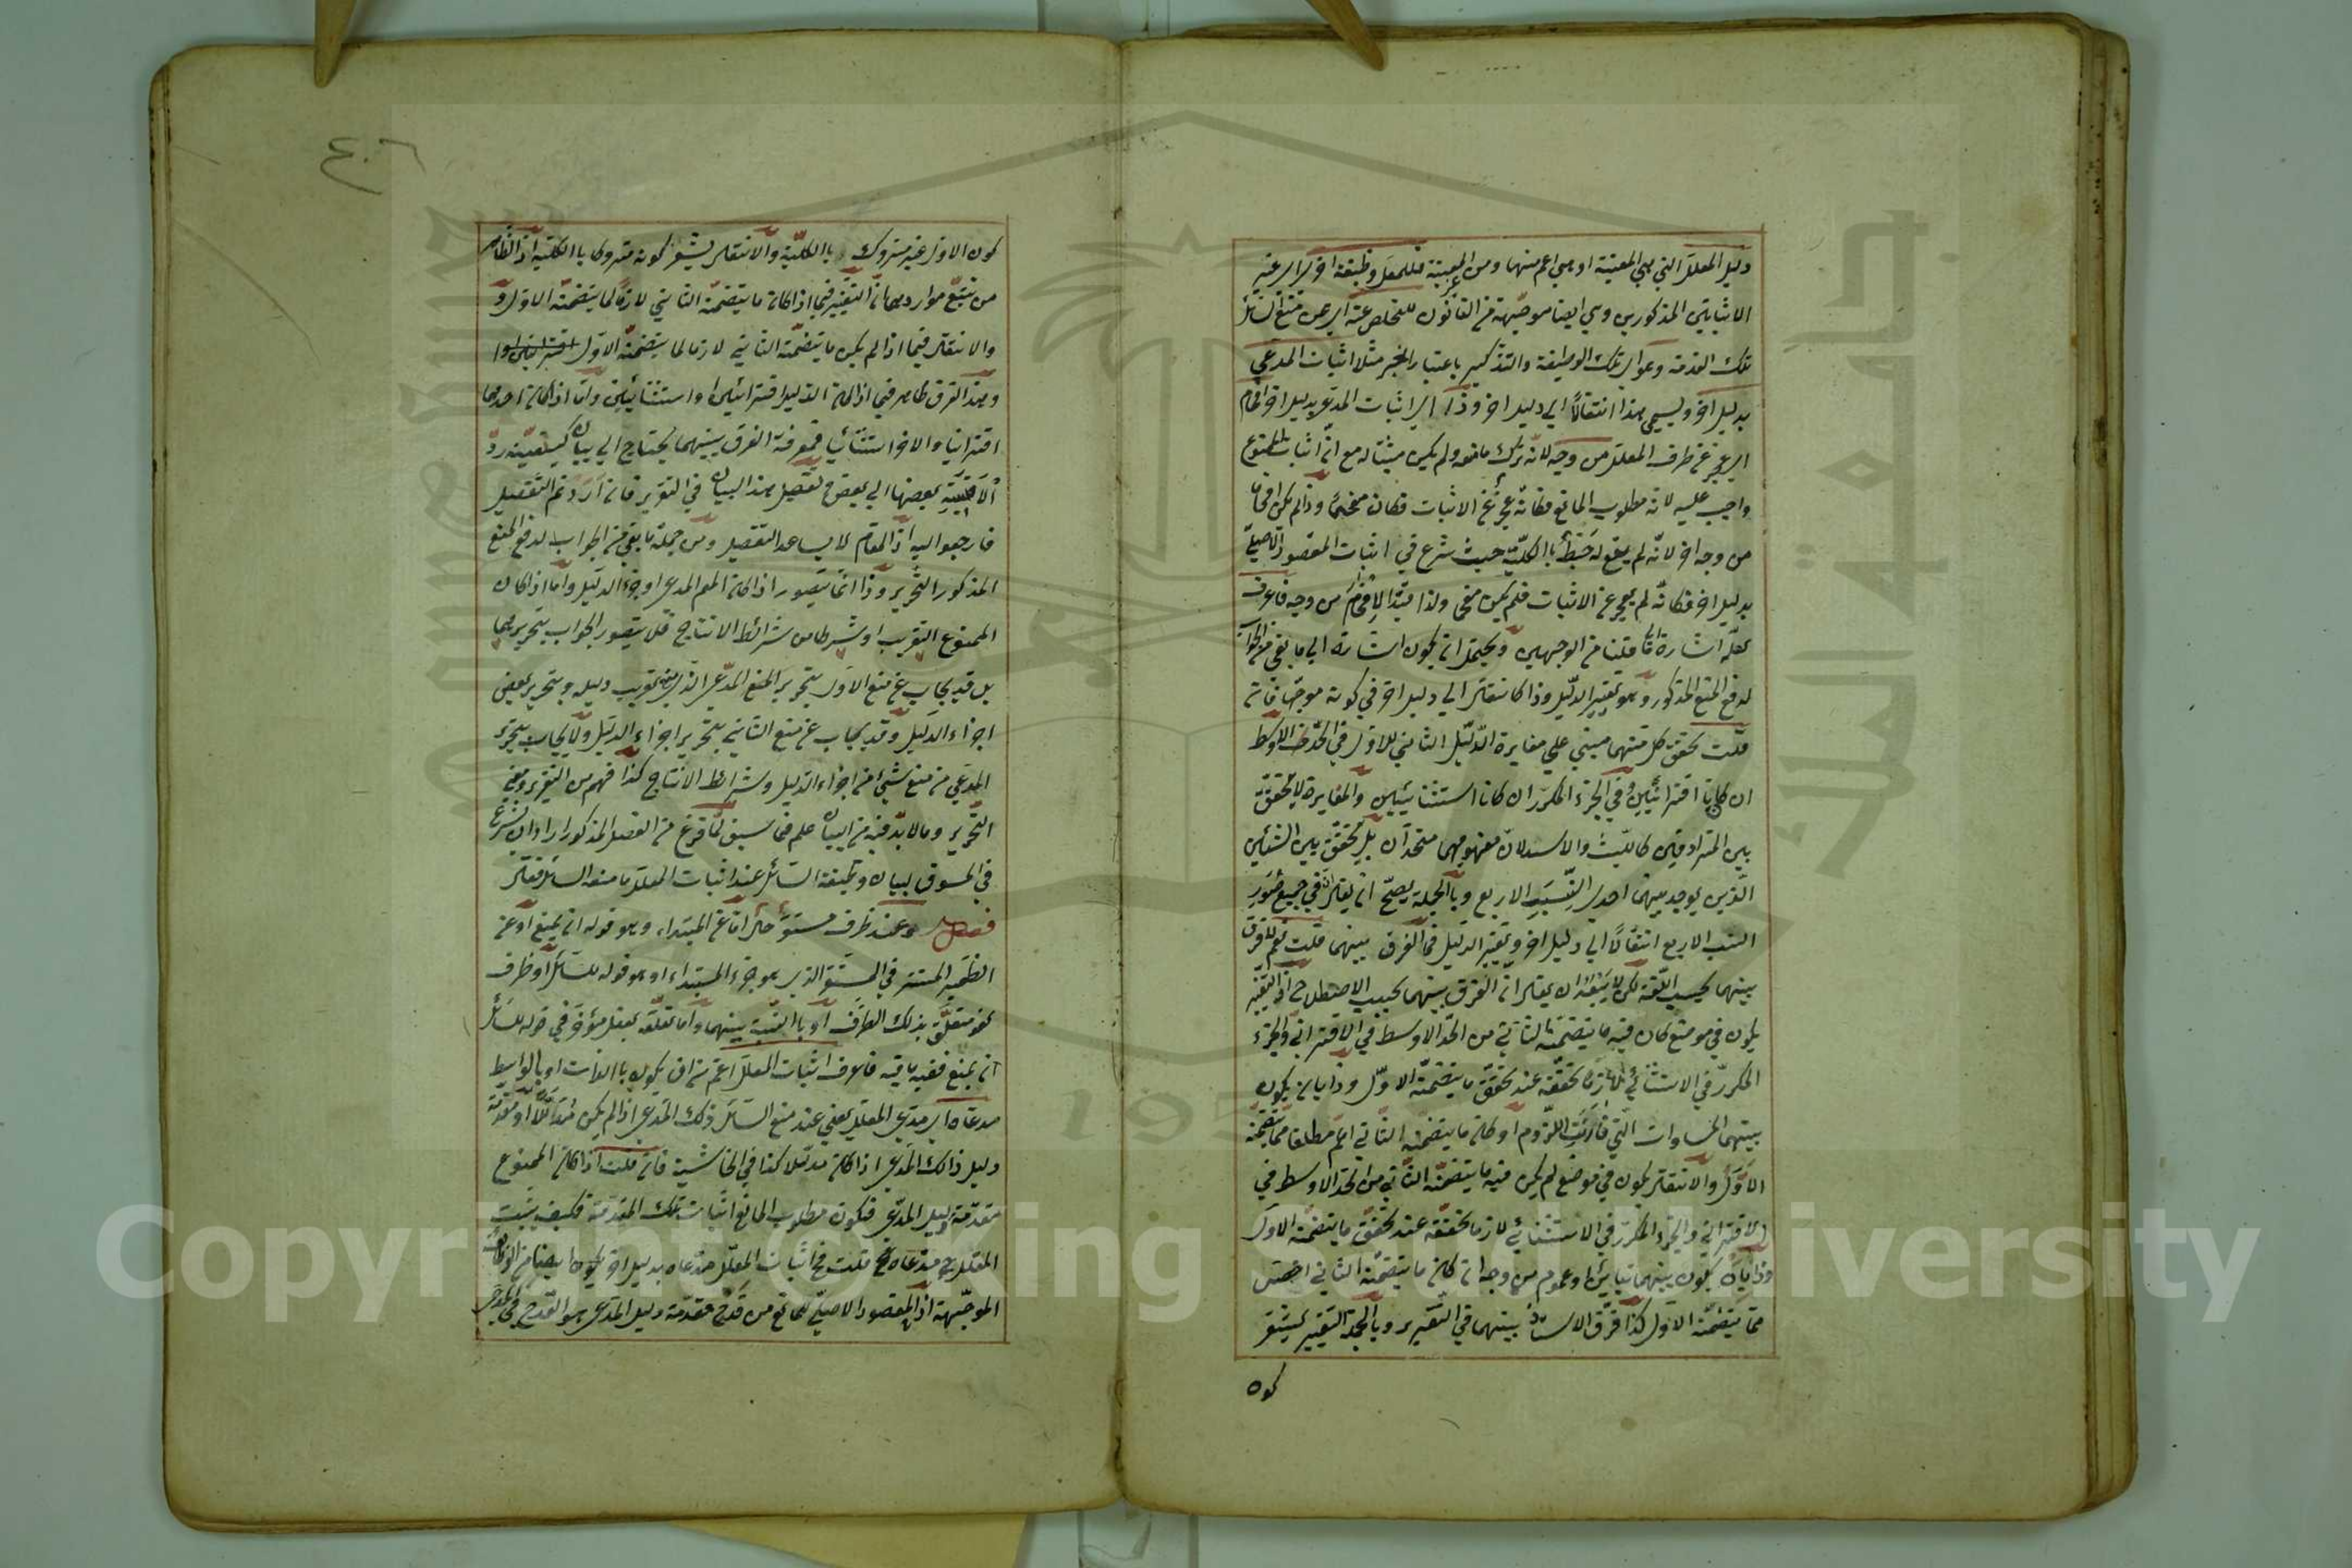 دليل المعلل التي هي المعينة او هي اعم منها ومن المعينة فللمعلل وظيفة اخرى اي غير
الاثباتين المذكورين وهي ايضا موجهة في القانون للتخلص عنه اي عن منع السائل
تلك المقدمة وعن اي تلك الوظيفة والتذكير باعتبار الخبر مثلا اثبات المدعي
بدليل اخر ويسمى هذا انتقالا الى دليل اخر وذا اي اثبات المدعى بدليل اخر افحام
اي عجز من طرف المعلل من وجه لانه ترك ما منعه ولم يكن مثبتا له مع ان اثبات الممنوع
واجب عليه لانه مطلوب المانع فكانه عجز عن الاثبات فكان مفحما وذا لم يكن افحاما
من وجه اخر لانه لم يقع له خبط بالكلية حيث شرع في اثبات المقصود الاصلي
بدليل اخر فكانه لم يعجز عن الاثبات فلم يكن مفحما ولذا قيد الافحام من وجه فاعرف
لعله اشارة الى ما قلنا من الوجهين ويحتمل ان يكون اشارة الى ما بقي من الجواب
لدفع المنع المذكور وهو تغيير الدليل وذا كانتقال الى دليل اخر في كونه موجها فان
قلت تحقق كل منهما مبني على مغايرة الدليل الثاني للاول في الحد الاوسط
ان كانا اقترانيين وفي الجزء المكرر ان كانا استثنائيين والمغايرة لا تحقق
بين المترادفين كالليث والاسد لان مفهومهما متحدان بل تحقق بين الشيئين
الذين يوجد بينهما احدى النسب الاربع وبالجملة يصح ان يقال في جميع صور
النسب الاربع انتقالا الى دليل اخر وتغيير الدليل فما الفرق بينهما قلت نعم لا فرق
بينهما بحسب اللغة لكن لا يبعد ان يقال ان الفرق بينهما بحسب الاصطلاح اذ التغيير
يكون في موضع كان فيه ما يتضمنه الثاني من الحد الاوسط في الاقتراني والجزء
المكرر في الاستثنائي لازما تحققه عند تحقق ما يتضمنه الاول وذا بان يكون
بينهما المساوات التي قارنت اللزوم او كان ما يتضمنه الثاني اعم مطلقا مما يتضمنه
الاول والانتقال يكون في موضع لم يكن فيه ما يتضمنه الثاني من الحد الاوسط في
الاقتراني والجزء المكرر في الاستثنائي لازما تحققه عند تحقق ما يتضمنه الاول
وذا بان يكون بينهما تباين او عموم من وجه او كان ما يتضمنه الثاني اخص
مما يتضمنه الاول كذا فرق الاستاذ بينهما في التقرير وبالجملة التغيير يشعر
كون
كون الاول غير متروك بالكلية والانتقال يشعر كونه متروكا بالكلية اذ الظاهر
من تتبع مواردهما ان التغيير فيما اذا كان ما يتضمنه الثاني لازما لما يتضمنه الاول
والانتقال فيما اذا لم يكن ما يتضمنه الثاني لازما لما يتضمنه الاول
وهذا الفرق ظاهر فيما اذا كان الدليل اقترانيين او استثنائيين واما اذا كان احدهما
اقترانيا والاخر استثنائيا فمعرفة الفرق بينهما يحتاج الى بيان كيفية رد
الاقيسة بعضها الى بعض وتفصيل هذا البيان في التقرير فان اردتم التفصيل
فارجعوا اليه اذ المقام لا يساعد التفصيل ومن جملة ما بقي من الجواب لدفع المنع
المذكور التحرير وذا انما يتصور اذا كان الممنوع المدعى او جزء الدليل واما اذا كان
الممنوع التقريب او شرطا من شرائط الانتاج فلا يتصور الجواب بتحريرهما
بل قد يجاب عن منع الاول بتحرير المدعى الذي منع تقريب دليله وبتحرير بعض
اجزاء الدليل وقد يجاب عن منع الثاني بتحرير اجزاء الدليل ولا يجاب بتحرير
المدعى من منع شيء من اجزاء الدليل وشرائط الانتاج كذا فهم من التقرير ومعنى
التحرير وما لا بد فيه من البيان علم فيما سبق لما فرغ من الفصل المذكور اراد ان يشرع
في المسوق لبيان وظيفة السائل عند اثبات المعلل ما منعه السائل فقال
فصل وعند ظرف مستقر حال اما عن المبتداء وهو قوله ان يمنع او عن
الضمير المستتر في المستقر الذي هو جزء المبتداء او هو قوله للسائل او ظرف
لغو متعلق بذلك الظرف او بالنسبة بينهما واما تعلقه بفعل مؤخر في قوله للسائل
ان يمنع ففيه ما فيه فاعرف اثبات المعلل اعم من ان يكون بالذات او بالواسطة
مدعاه اي مدعى المعلل يعني عند منع السائل ذلك المدعى اذا لم يكن مدللا او مقدمة
دليل ذلك المدعى اذا كان مدللا كذا في الحاشية فان قلت اذا كان الممنوع
مقدمة دليل المدعى فتكون مطلوب المانع اثبات تلك المقدمة فكيف يثبت
المعلل مدعاه قلت فاثبات المعلل مدعاه بدليل اخر يكون ايضا من الوظائف
الموجهة اذ المقصود الاصلي للمانع من قدح مقدمة دليل المدعى هو القدح في المدعى